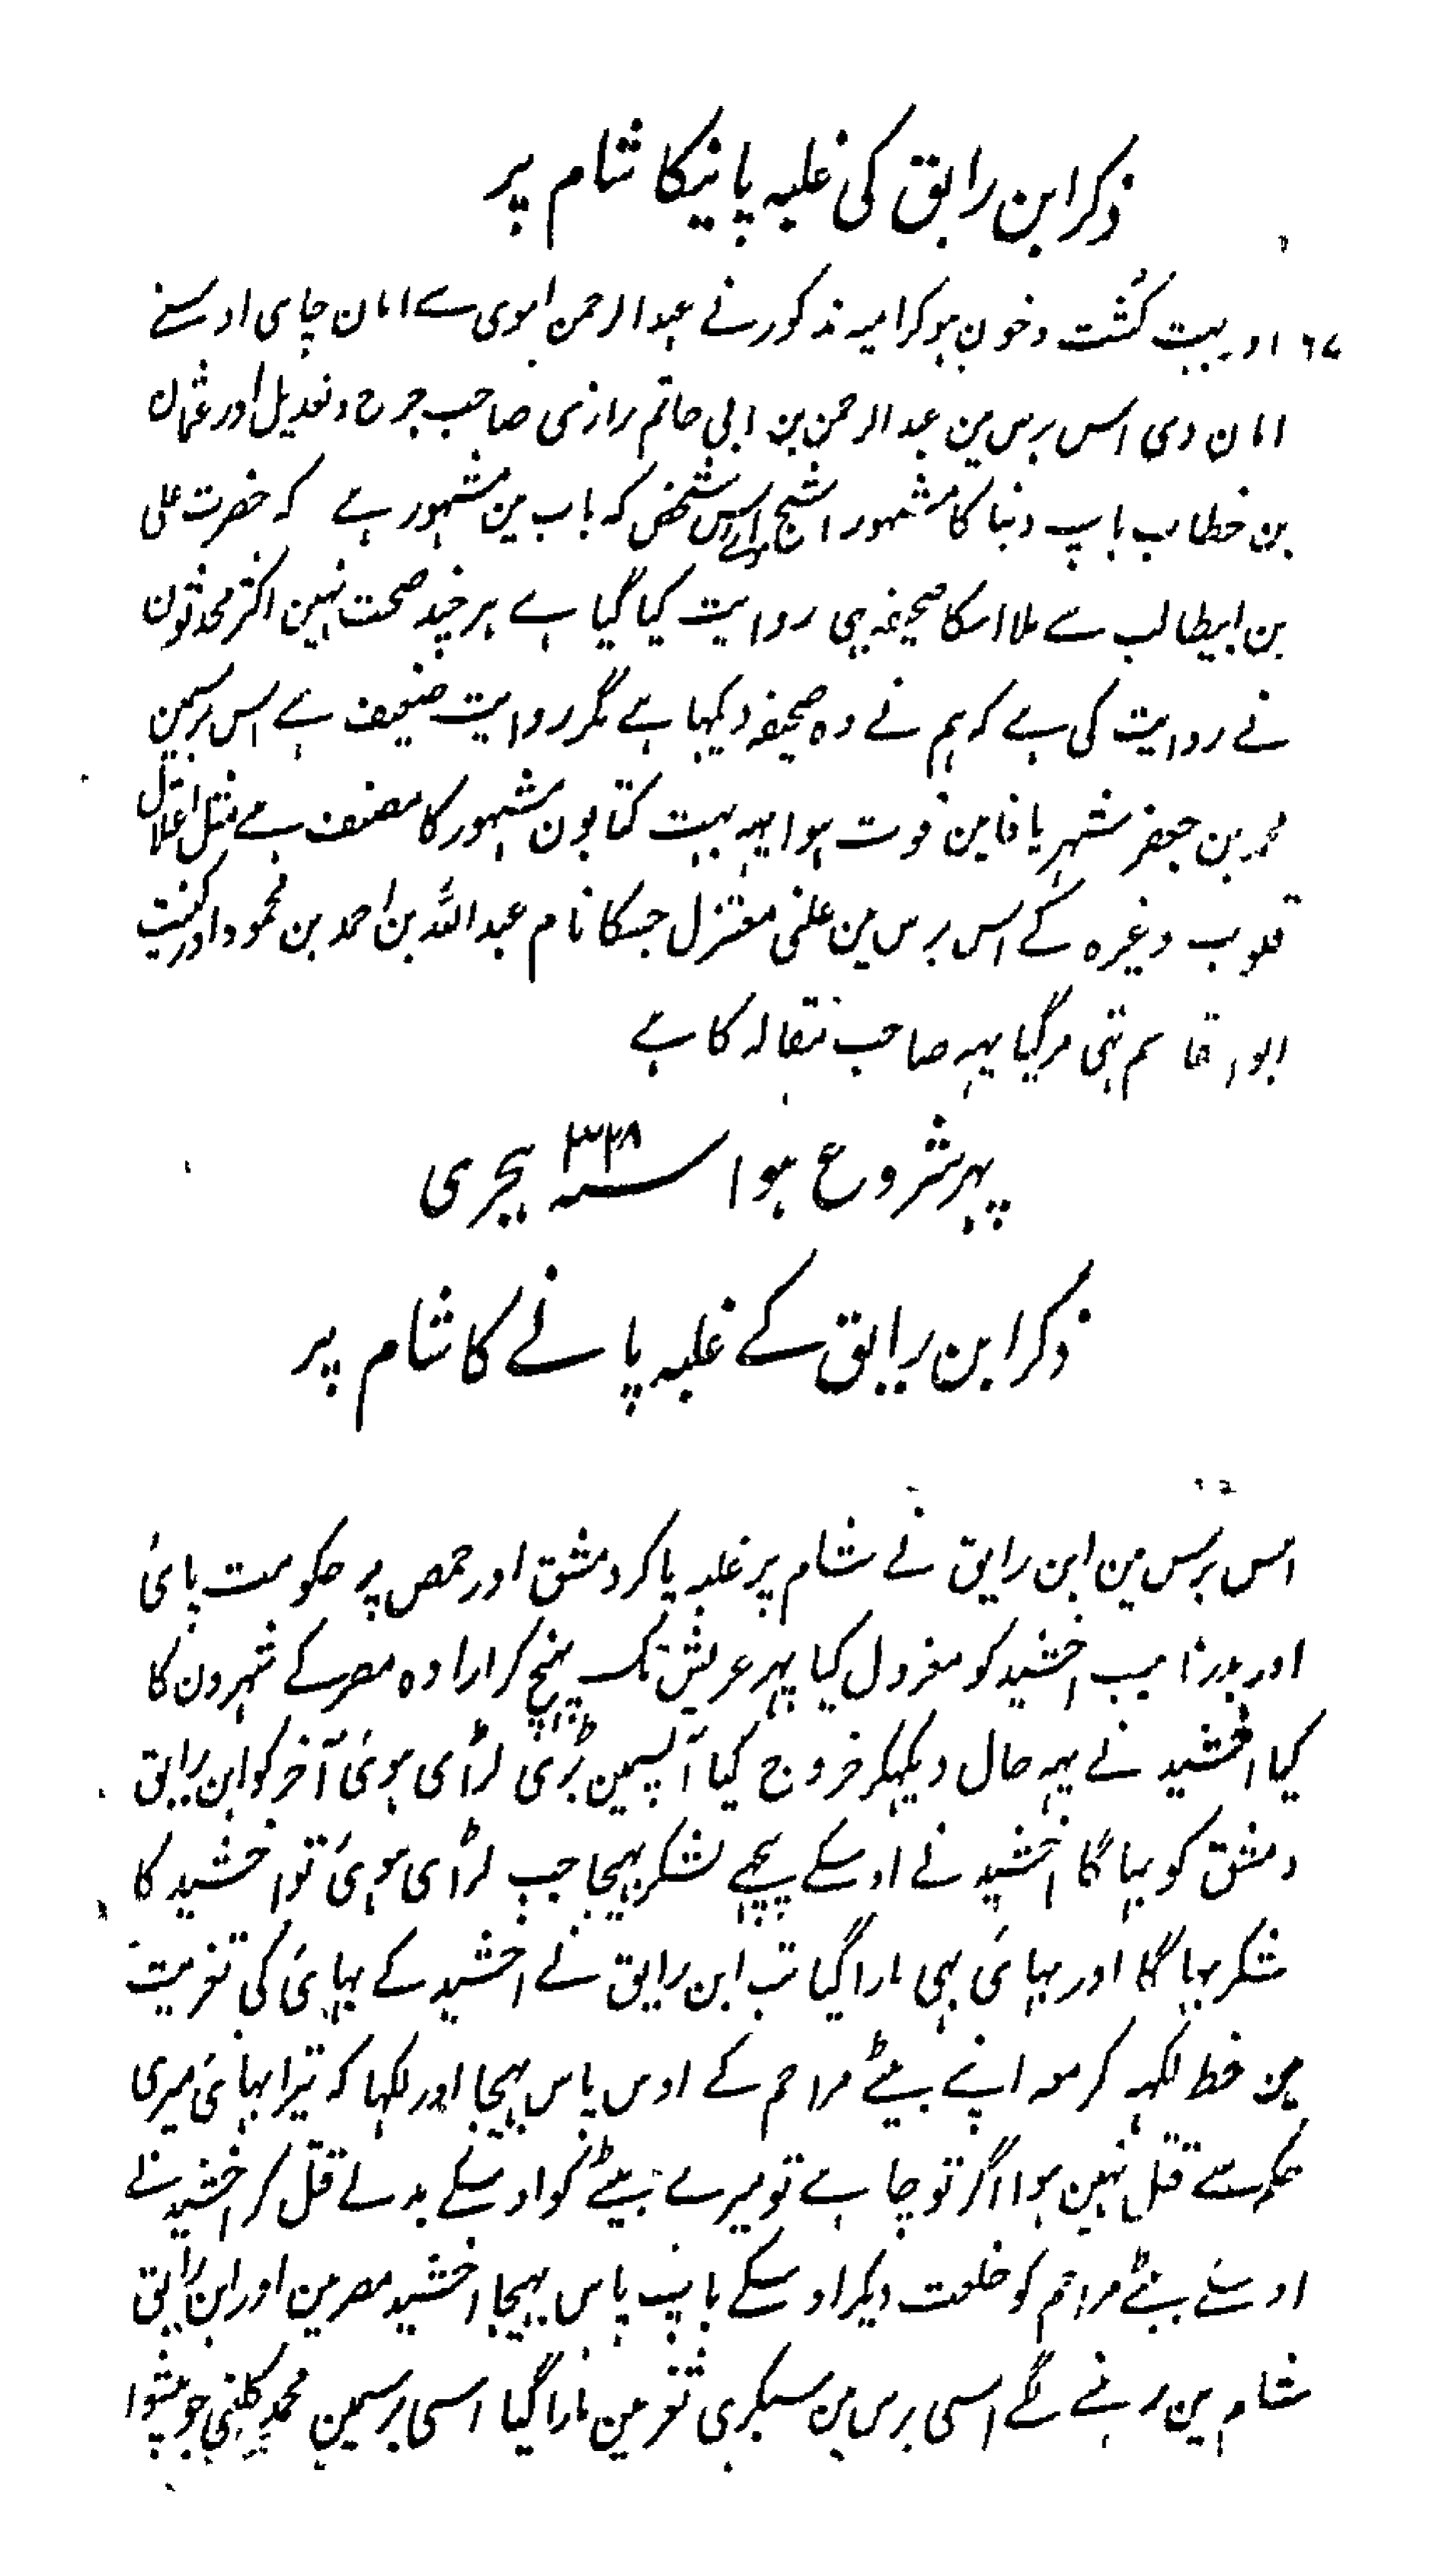 ذکر ابن رایق کی غلبہ پانیکا شام پر
۱۶۷ اور بہت کُشت و خون ہو کر امیہ مذکور نے عبد الرحمن اموی سے امان چاہی اوسنے
امان دی اس برس مین عبد الرحمن بن ابی حاتم رازی صاحب جرح و تعدیل اور عثمان
بن خطاب باپ دنیا کا مشہور اشج اس شخص کہ باب مین مشہور ہے کہ حضرت علی
بن ابیطالب سے ملا اسکا صحیفہ بہی روایت کیا گیا ہے ہر چند صحت نہین اکثر محدثون
نے روایت کی ہے کہ ہم نے وہ صحیفہ دیکہا ہے مگر روایت ضعیف ہے اس برسمین
محمد بن جعفر شہر یافا مین فوت ہوا یہہ بہت کتابون مشہور کا مصنف ہے مثل اعتلال
قلوب وغیرہ کے اس برس مین علنی معتزل جسکا نام عبد اللہ بن احمد بن محمود اور کنیت
ابو القاسم تہی مر گیا یہہ صاحب مقالہ کا ہے
پہر شروع ہوا سنہ ۳۲۸ ہجری
ذکر ابن رایق کے غلبہ پانے کا شام پر
اس برس مین ابن رایق نے شام پر غلبہ پا کر دمشق اور حمص پر حکومت پائی
اور بدر نایب اخشید کو معزول کیا پہر عریش تک پہنچ کر ارادہ مصر کے شہرون کا
کیا اخشید نے یہہ حال دیکہکر خروج کیا آپسمین بڑی لڑای ہوئی آخر کو ابن رایق
دمشق کو بہاگا اخشید نے اوسکے پیچہے لشکر بہیجا جب لڑای ہوئی تو اخشید کا
لشکر بہاگا اور بہائی بہی مارا گیا تب ابن رایق نے اخشید کے بہائی کی تعزیت
مین خط لکہہ کر معہ اپنے بیٹے مزاحم کے اوس پاس بہیجا اور لکہا کہ تیرا بہائی میری
حکم سے قتل نہین ہوا اگر تو چاہے تو میرے بیٹے کو اوسکے بدلے قتل کر اخشید نے
اوسنے بیٹے مزاحم کو خلعت دیکر اوسکے باپ پاس بہیجا اخشید مصر مین اور ابن رایق
شام مین رہنے لگے اسی برس مین سبکری ثغر مین مارا گیا اسی برسمین محمد کلینی جو پیشوا